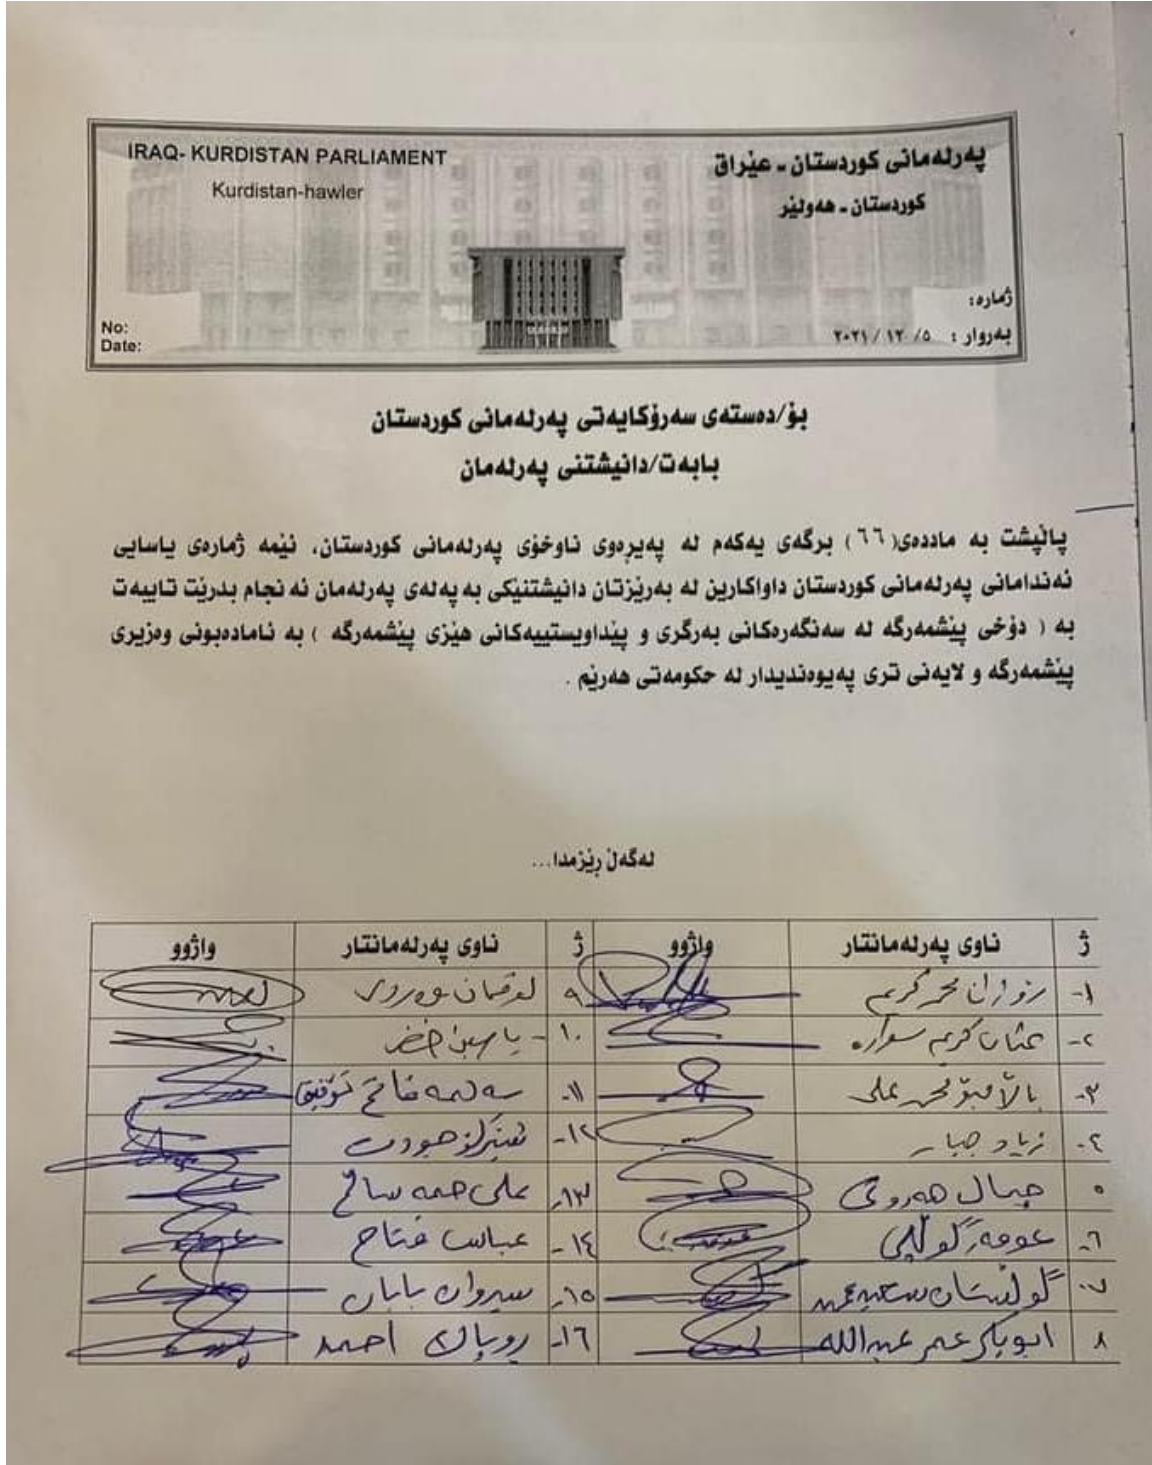 IRAQ- KURDISTAN PARLIAMENT
Kurdistan-hawler
پەرلەمانی کوردستان - عێراق
کوردستان - هەولێر
No:
Date:
ژمارە:
بەروار : ٥/ ١٢ / ٢٠٢١
بۆ/دەستەی سەرۆکایەتی پەرلەمانی کوردستان
بابەت/دانیشتنی پەرلەمان
پاڵپشت بە ماددەی( ٦٦ ) برگەی یەکەم لە پەیرەوی ناوخۆی پەرلەمانی کوردستان، ئێمە ژمارەی یاسایی
ئەندامانی پەرلەمانی کوردستان داواکارین لە بەرێزتان دانیشتنێکی بە پەلەی پەرلەمان ئە نجام بدرێت تایبەت
بە ( دۆخی پێشمەرگە لە سەنگەرەکانی بەرگری و پێداویستییەکانی هێزی پێشمەرگە ) بە ئامادەبونی وەزیری
پێشمەرگە و لایەنی تری پەیوەندیدار لە حکومەتی هەرێم .
لەگەڵ رێزمدا...
ژ ناوی پەرلەمانتار واژوو ژ ناوی پەرلەمانتار واژوو
١- محمد کریم ٩ لوقمان
٢- عثمان کریم سوارە ١٠- یاسین خضر
٣- محمد علی ١١- سەلمە فاتح تۆفیق
٤- زیاد جبار ١٢- جودت
٥ جمال ١٣- علی حمە سالح
٦- عومەر گوڵپی ١٤- عباس فتاح
٧- گولیستان سعید محمد ١٥- سیروان بابان
٨ ابوبکر عمر عبدالله ١٦- روپاک احمد